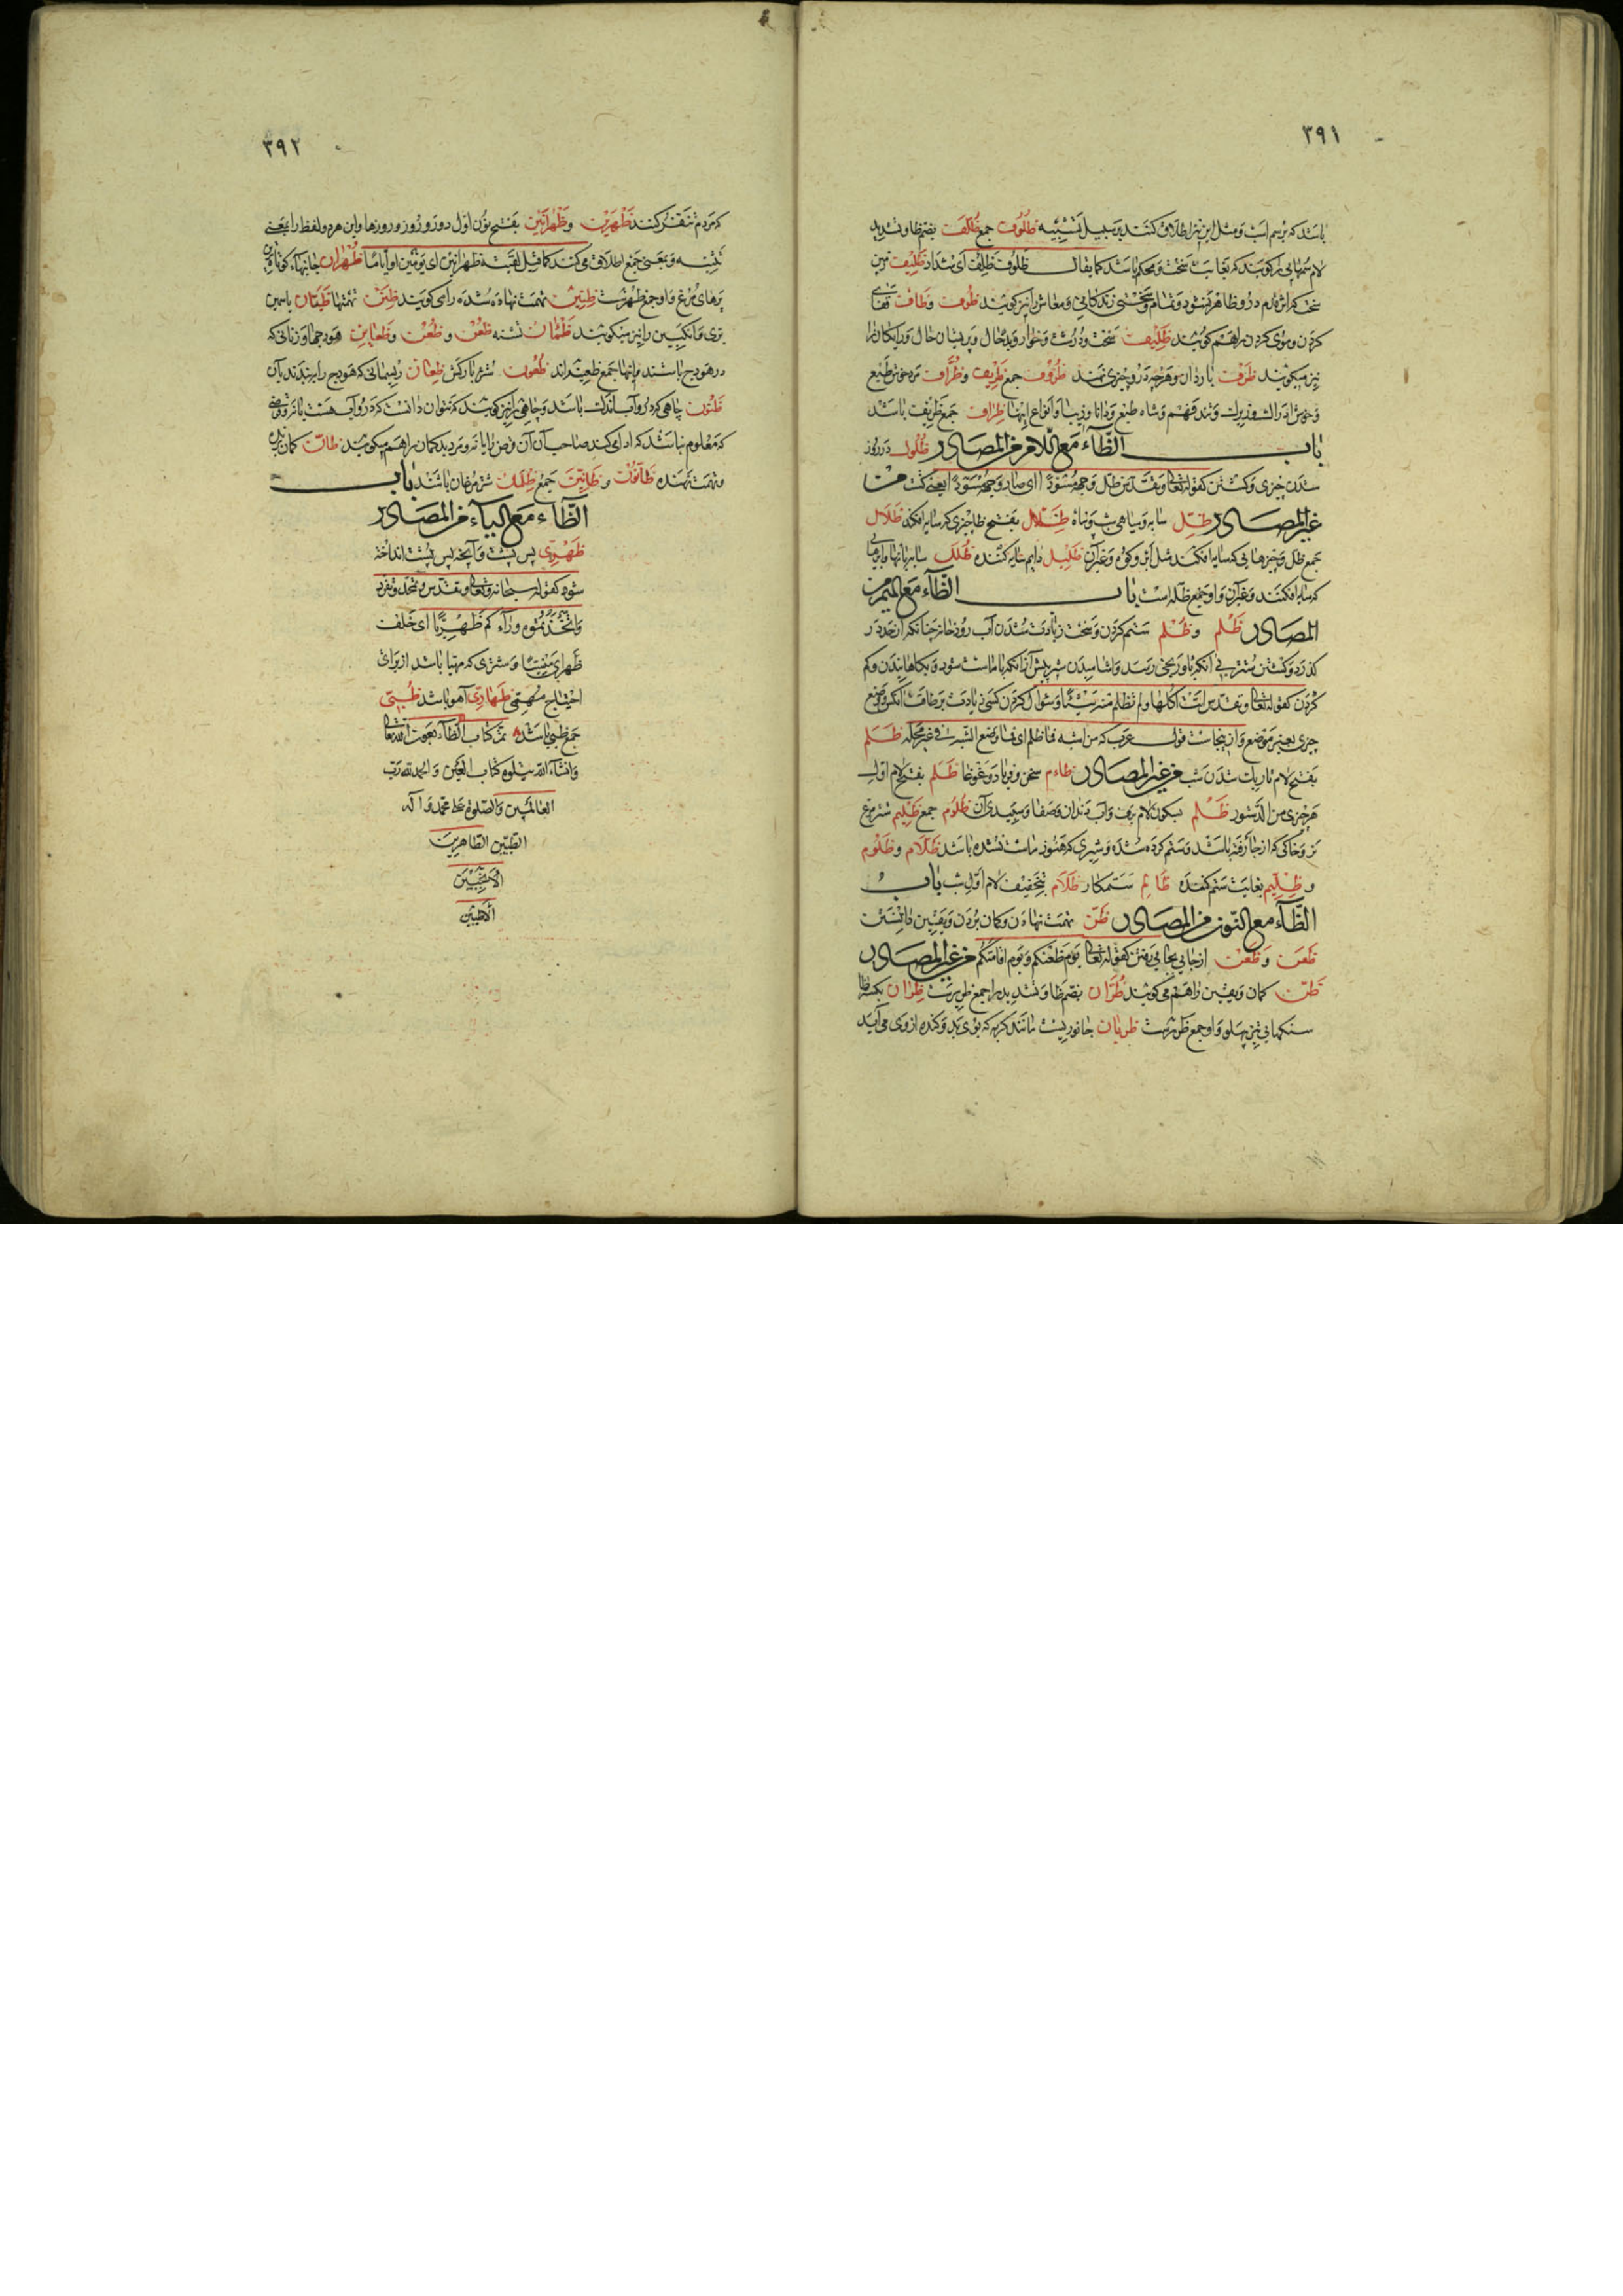 ٣٩١
باشد که برسم اسب و مثل این نیز اطلاق کنند بر سبیل تشبیه ظلوف جمع ظلف بضم ظا و تشدید
لام سمهائی را کویند که بغایت سخت و محکم باشد کما یقال ظلوف ظلف ای شداد ظلیف زمین
سخت که اثر قدم درو ظاهر نشود و تمام و سختی زندکانی و معاش را نیز کویند ظوف و ظاف قفای
کردن و موی کردن را هم کویند ظلیفت سخت و درشت و خوار و بدحال و پریشان حال و رایکان را
نیز میکویند ظرف باردان و هرچه درو چیزی نهند ظروف جمع ظریف و ظراف مرد خوش طبع
و خوش ادا و زیرک و تند فهم و شاه طبع و دانا و زیبا و انواع اینها ظراف جمع ظریف باشد
باب الظآء مع اللام من المصادر ظلول در روز
شدن چیزی و کشتن کقوله تعالی و تقدس ظل وجهه مسودا ای صار وجهه مسودا یعنی کشت من
غیر المصادر ظل سایه و سیاهی شب و پناه ظلال بفتح ظا چیزی که سایه افکند ظلال
جمع ظل و چیزهایی که سایه افکنند مثل ابر و کوه و غیر آن ظلیل دایم سایه کننده ظلل سایه بانها و ابرهایی
که سایه افکنند و غیر آن و او جمع ظله است باب الظآء مع المیم من
المصادر ظلم و ظلم ستم کردن و سخت زیادت شدن آب رودخانه چنانکه از حد در
کذرد و کشتن شتر بی آنکه باو رنجی رسد و اشامیدن شیر پیش از آنکه ماست شود و بکاهانیدن و کم
کردن کقوله تعالی و تقدس اتت اکلها و لم تظلم منه شیئا و سؤال کردن کسی زیادت بر طاقت انکس و وضع
چیزی بغیر موضع و از اینجاست قول عرب که من اشبه اباه فما ظلم ای فما وضع الشبه فی غیر محله ظلم
بفتح لام تاریک شدن شب من غیر المصادر ظاءم سخن و فریاد و غوغا ظلم بفتح لام اول
هر چیزی من الدستور ظلم بسکون لام برف و آب دندان و صفا و سپیدی آن ظلوم جمع ظلیم شترمرغ
نر و خاکی که از جا رفته باشد و ستم کرده شده و شیری که هنوز ماست نشده باشد ظلام و ظلوم
و ظلیم بغایت ستم کننده ظالم ستمکار ظلام بتخفیف لام اول شب باب
الظآء مع النون من المصادر ظن تهمت نهادن و کمان بردن و یقین دانستن
ظعن و ظعن از جایی بجایی رفتن کقوله تعالی یوم ظعنکم و یوم اقامتکم من غیر المصادر
ظن کمان و یقین را هم می کویند ظران بضم ظا و تشدید را جمع ظریرست ظران بکسر ظا
سنکهائی تیز پهلو و او جمع ظررست ظربان جانوریست مانند کربه که بوی بد و کنده از وی می آید
٣٩٢
که مردم تنفر کنند ظهرین و ظهرانین بفتح نون اول دو روز و روز و روزها و این هر دو لفظ را بمعنی
تثنیه و بمعنی جمع اطلاق می کنند کما قیل لقیته ظهرانین ای یومین او ایاما ظهران جانبهاء کوتاه
پرهای مرغ و او جمع ظهرست ظنین تهمت نهاده شده را می کویند ظنن تهمتها ظیان یاسمین
بری و انکبین را نیز میکویند ظمأن تشنه ظعن و ظعن و ظعاین هودجها و زنانی که
در هودج باشند و اینها جمع ظعینه اند ظعون شتر بارکش ظعان ریسمانی که هودج را بر بندند بآن
ظنون چاهی که درو آب اندک باشد و چاهی را نیز کویند که نتوان دانست که درو آب هست یا نه و قرضی
که معلوم نباشد که ادا می کند صاحب آن آن قرض را یا نه و مرد بدکمان را هم میکویند ظان کمان برنده
و تهمت نهنده ظانون و ظانین جمع ظلمان شترمرغان باشند باب
الظآء مع الیآء من المصادر
ظهری پس پشت و آنچه پس پشت انداخته
شود کقوله سبحانه و تعالی و تقدس و تمجد و تفرد
و اتخذتموه ورآءکم ظهریا ای خلف
ظهرای منسیا و شتری که مهیا باشد از برای
احتیاج مهمی ظهاری آهو باشد ظبی
جمع ظبی باشد تم کتاب الظآء بعون الله تعالی
و انشآء الله یتلوه کتاب العین و الحمد لله رب
العالمین و الصلوة علی محمد و اله
الطیبین الطاهرین
الانجبین